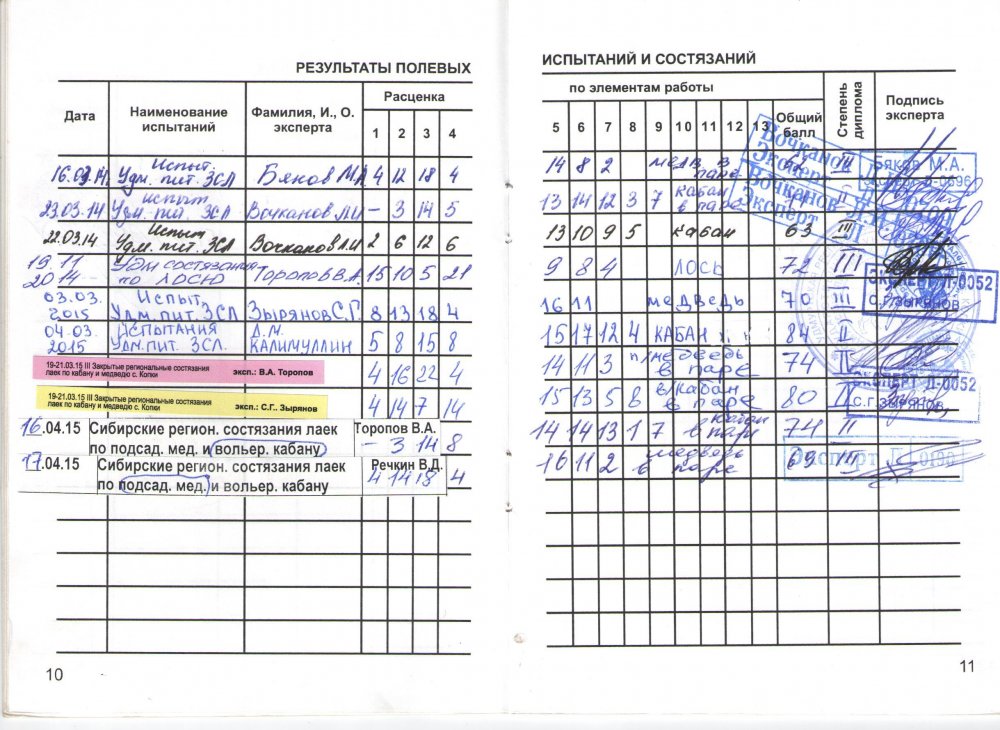 РЕЗУЛЬТАТЫ ПОЛЕВЫХ
Дата Наименование испытаний Фамилия, И., О. эксперта Расценка
1 2 3 4
16.03.14 Испыт. Удм. пит. ЗСЛ Бяков М.А. 4 12 18 4
23.03.14 Испыт Удм. пит. ЗСЛ Вочканов Л.И - 3 14 5
22.03.14 Испыт Удм. пит. ЗСЛ Вочканов Л.И 2 6 12 6
19 11 2014 Удм состязания по лосю Торопов В.А. 15 10 5 21
03.03.2015 Испыт. Удм. пит. ЗСЛ Зырянов С.Г. 8 13 18 4
04.03.2015 Испытания Удм. пит. ЗСЛ. Д.М. Калимуллин 5 8 15 8
19-21.03.15 III Закрытые региональные состязания
лаек по кабану и медведю с. Копки эксп.: В.А. Торопов 4 16 22 4
19-21.03.15 III Закрытые региональные состязания
лаек по кабану и медведю с. Копки эксп.: С.Г.. Зырянов 4 14 7 14
16.04.15 Сибирские регион. состязания лаек Торопов В.А.
по подсад. мед. и вольер. кабану - 3 14 8
17.04.15 Сибирские регион. состязания лаек Речкин В.Д.
по подсад. мед. и вольер. кабану 4 14 18 4
10
ИСПЫТАНИЙ И СОСТЯЗАНИЙ
по элементам работы Общий балл Степень диплома Подпись эксперта
5 6 7 8 9 10 11 12 13
14 8 2 медв. в паре III
13 14 12 3 7 кабан в паре II
13 10 9 5 кабан 63 III
9 8 4 лось 72 III
16 11 медведь 70 III
15 17 12 4 кабан 84 II
14 11 3 медведь в паре 74 II
15 13 5 8 кабан в паре 80 II
14 14 13 1 7 кабан в паре 74 II
16 11 2 медведь в паре 69 III
Вочканов
Эксперт
Вочканов Л.И.
Эксперт
Бяков М.А.
Эксперт Л-0052
С.Г. Зырянов
Эксперт Л-0052
С.Г. Зырянов
Эксперт Л 0190
11